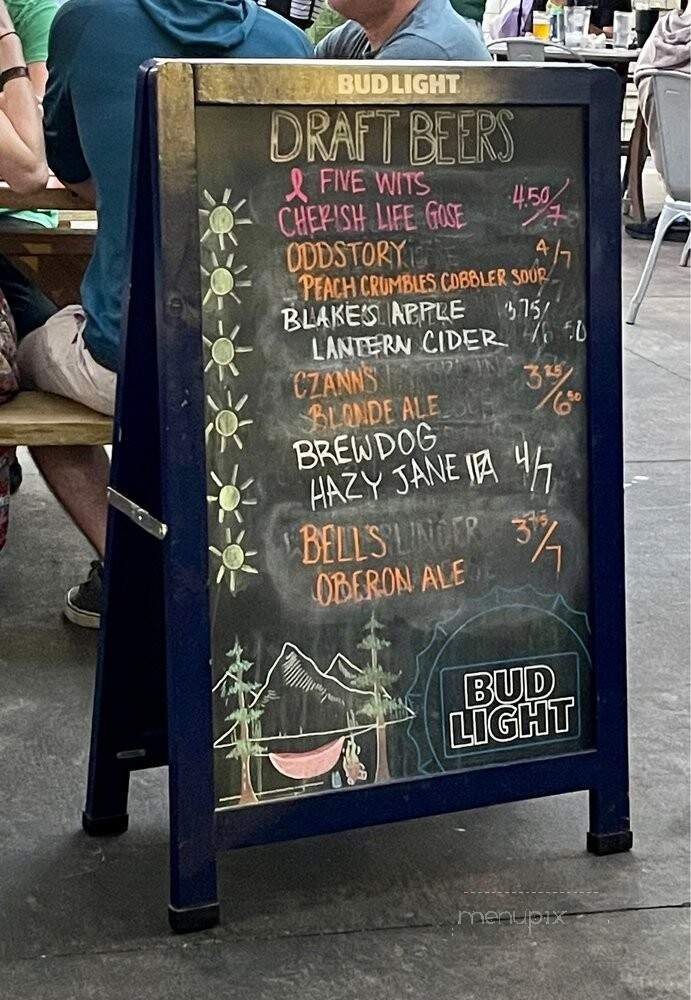 BUD LIGHT
DRAFT BEERS
FIVE WITS
CHERISH LIFE GOSE 4.50/7
ODDSTORY 4/7
PEACH CRUMBLES COBBLER SOUR
BLAKE'S APPLE 375/
LANTERN CIDER
CZANN'S 325/650
BLONDE ALE
BREWDOG
HAZY JANE IPA 4/7
BELL'S 375/7
OBERON ALE
BUD
LIGHT
menupix